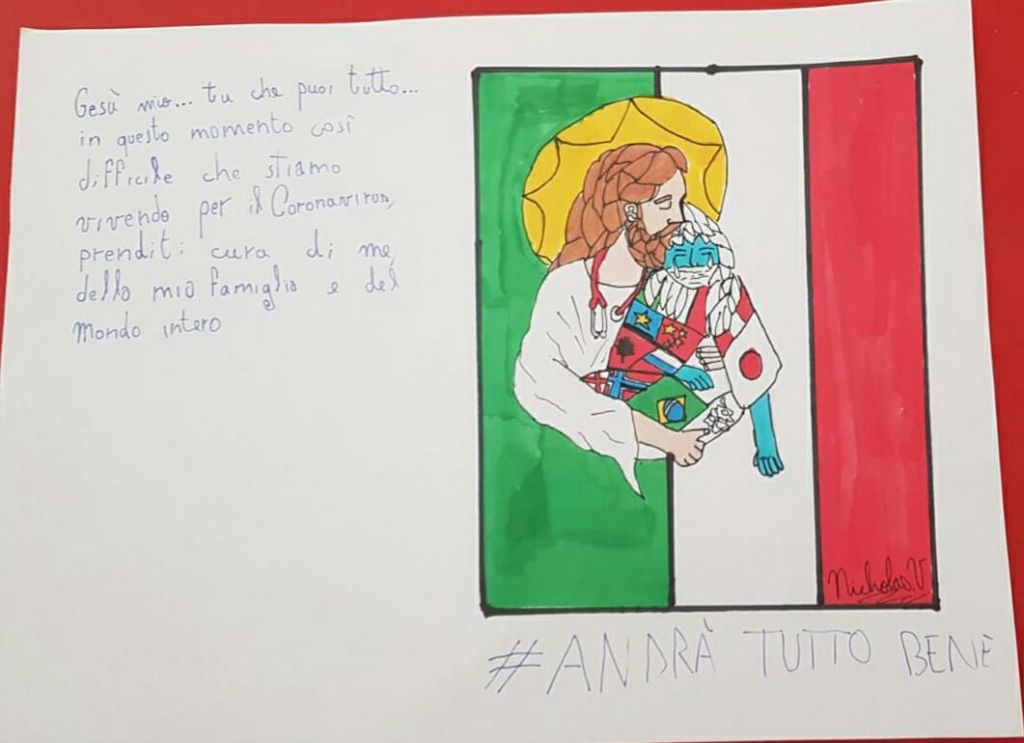 Gesù mio... tu che puoi tutto...
in questo momento così
difficile che stiamo
vivendo per il Coronavirus,
prenditi cura di me,
della mia famiglia e del
Mondo intero
Nicholas.V
#ANDRÀ TUTTO BENE